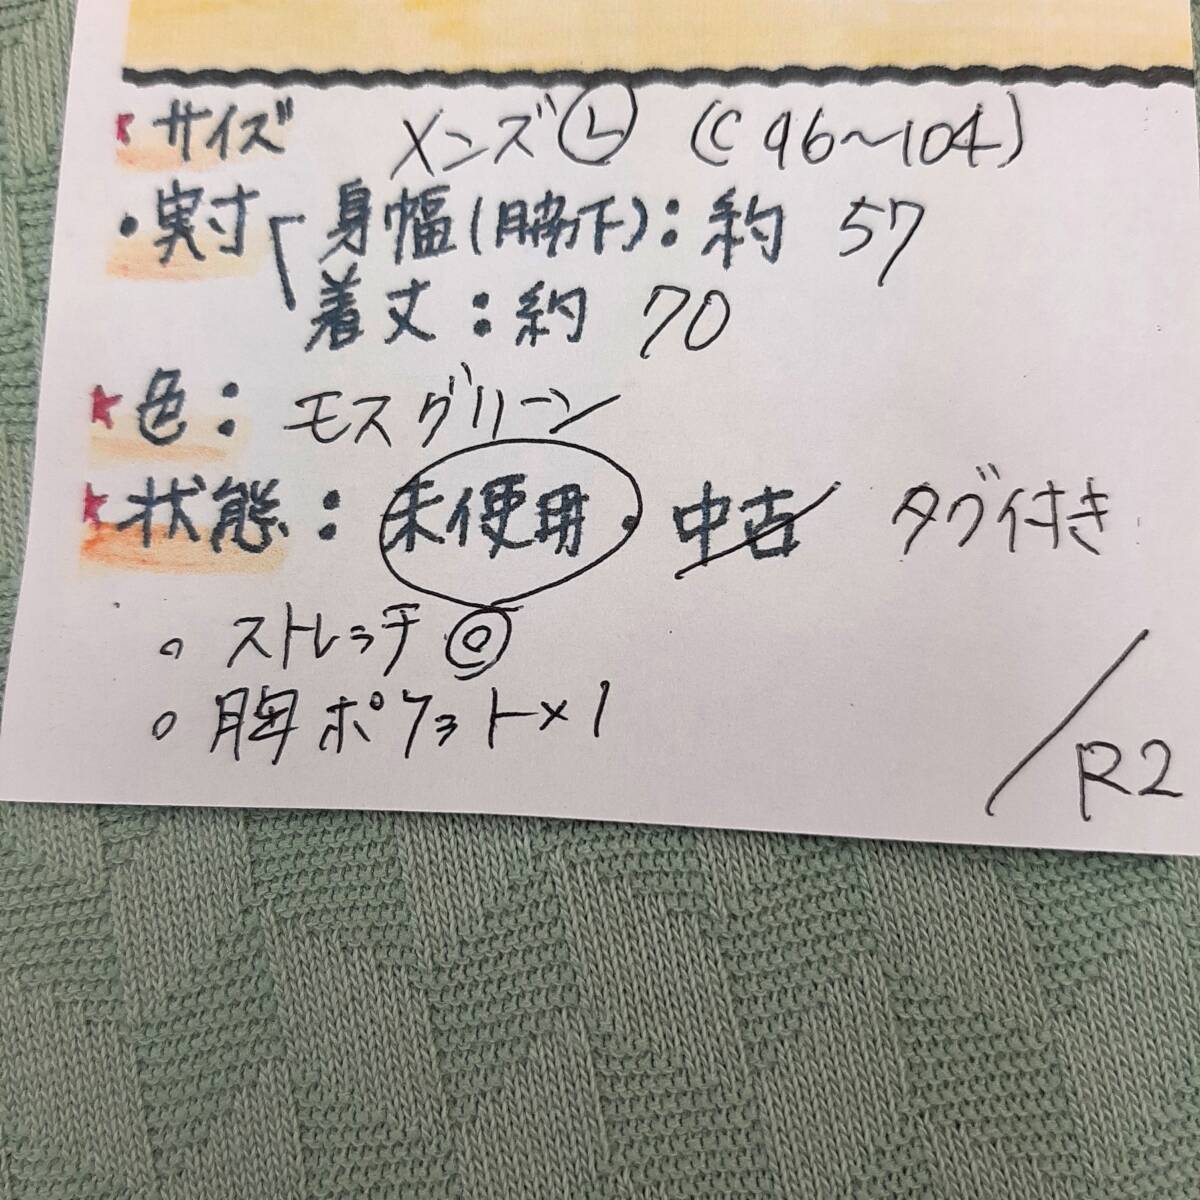 ★サイズ メンズ Ⓛ (C 96〜104)
・実寸「身幅(脇下):約 57
着丈:約 70
★色: モスグリーン
★状態: 未使用・中古 タグ付き
○ ストレッチ◎
○ 胸ポケット×1
/R2